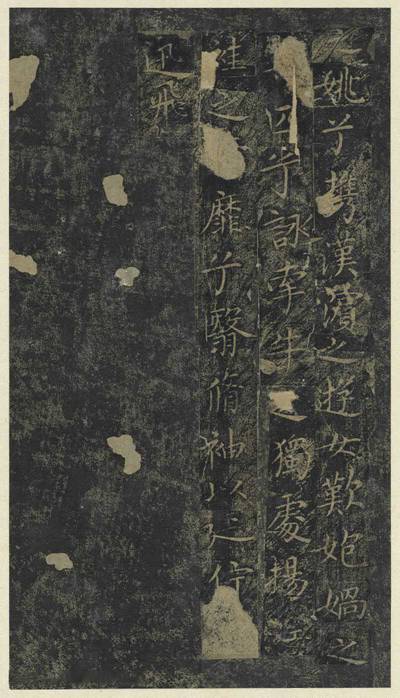 姚兮攜漢濱之遊女歎匏媧之
匹兮詠牽牛之獨處揚
袿之靡兮翳脩袖以延佇
迅飛